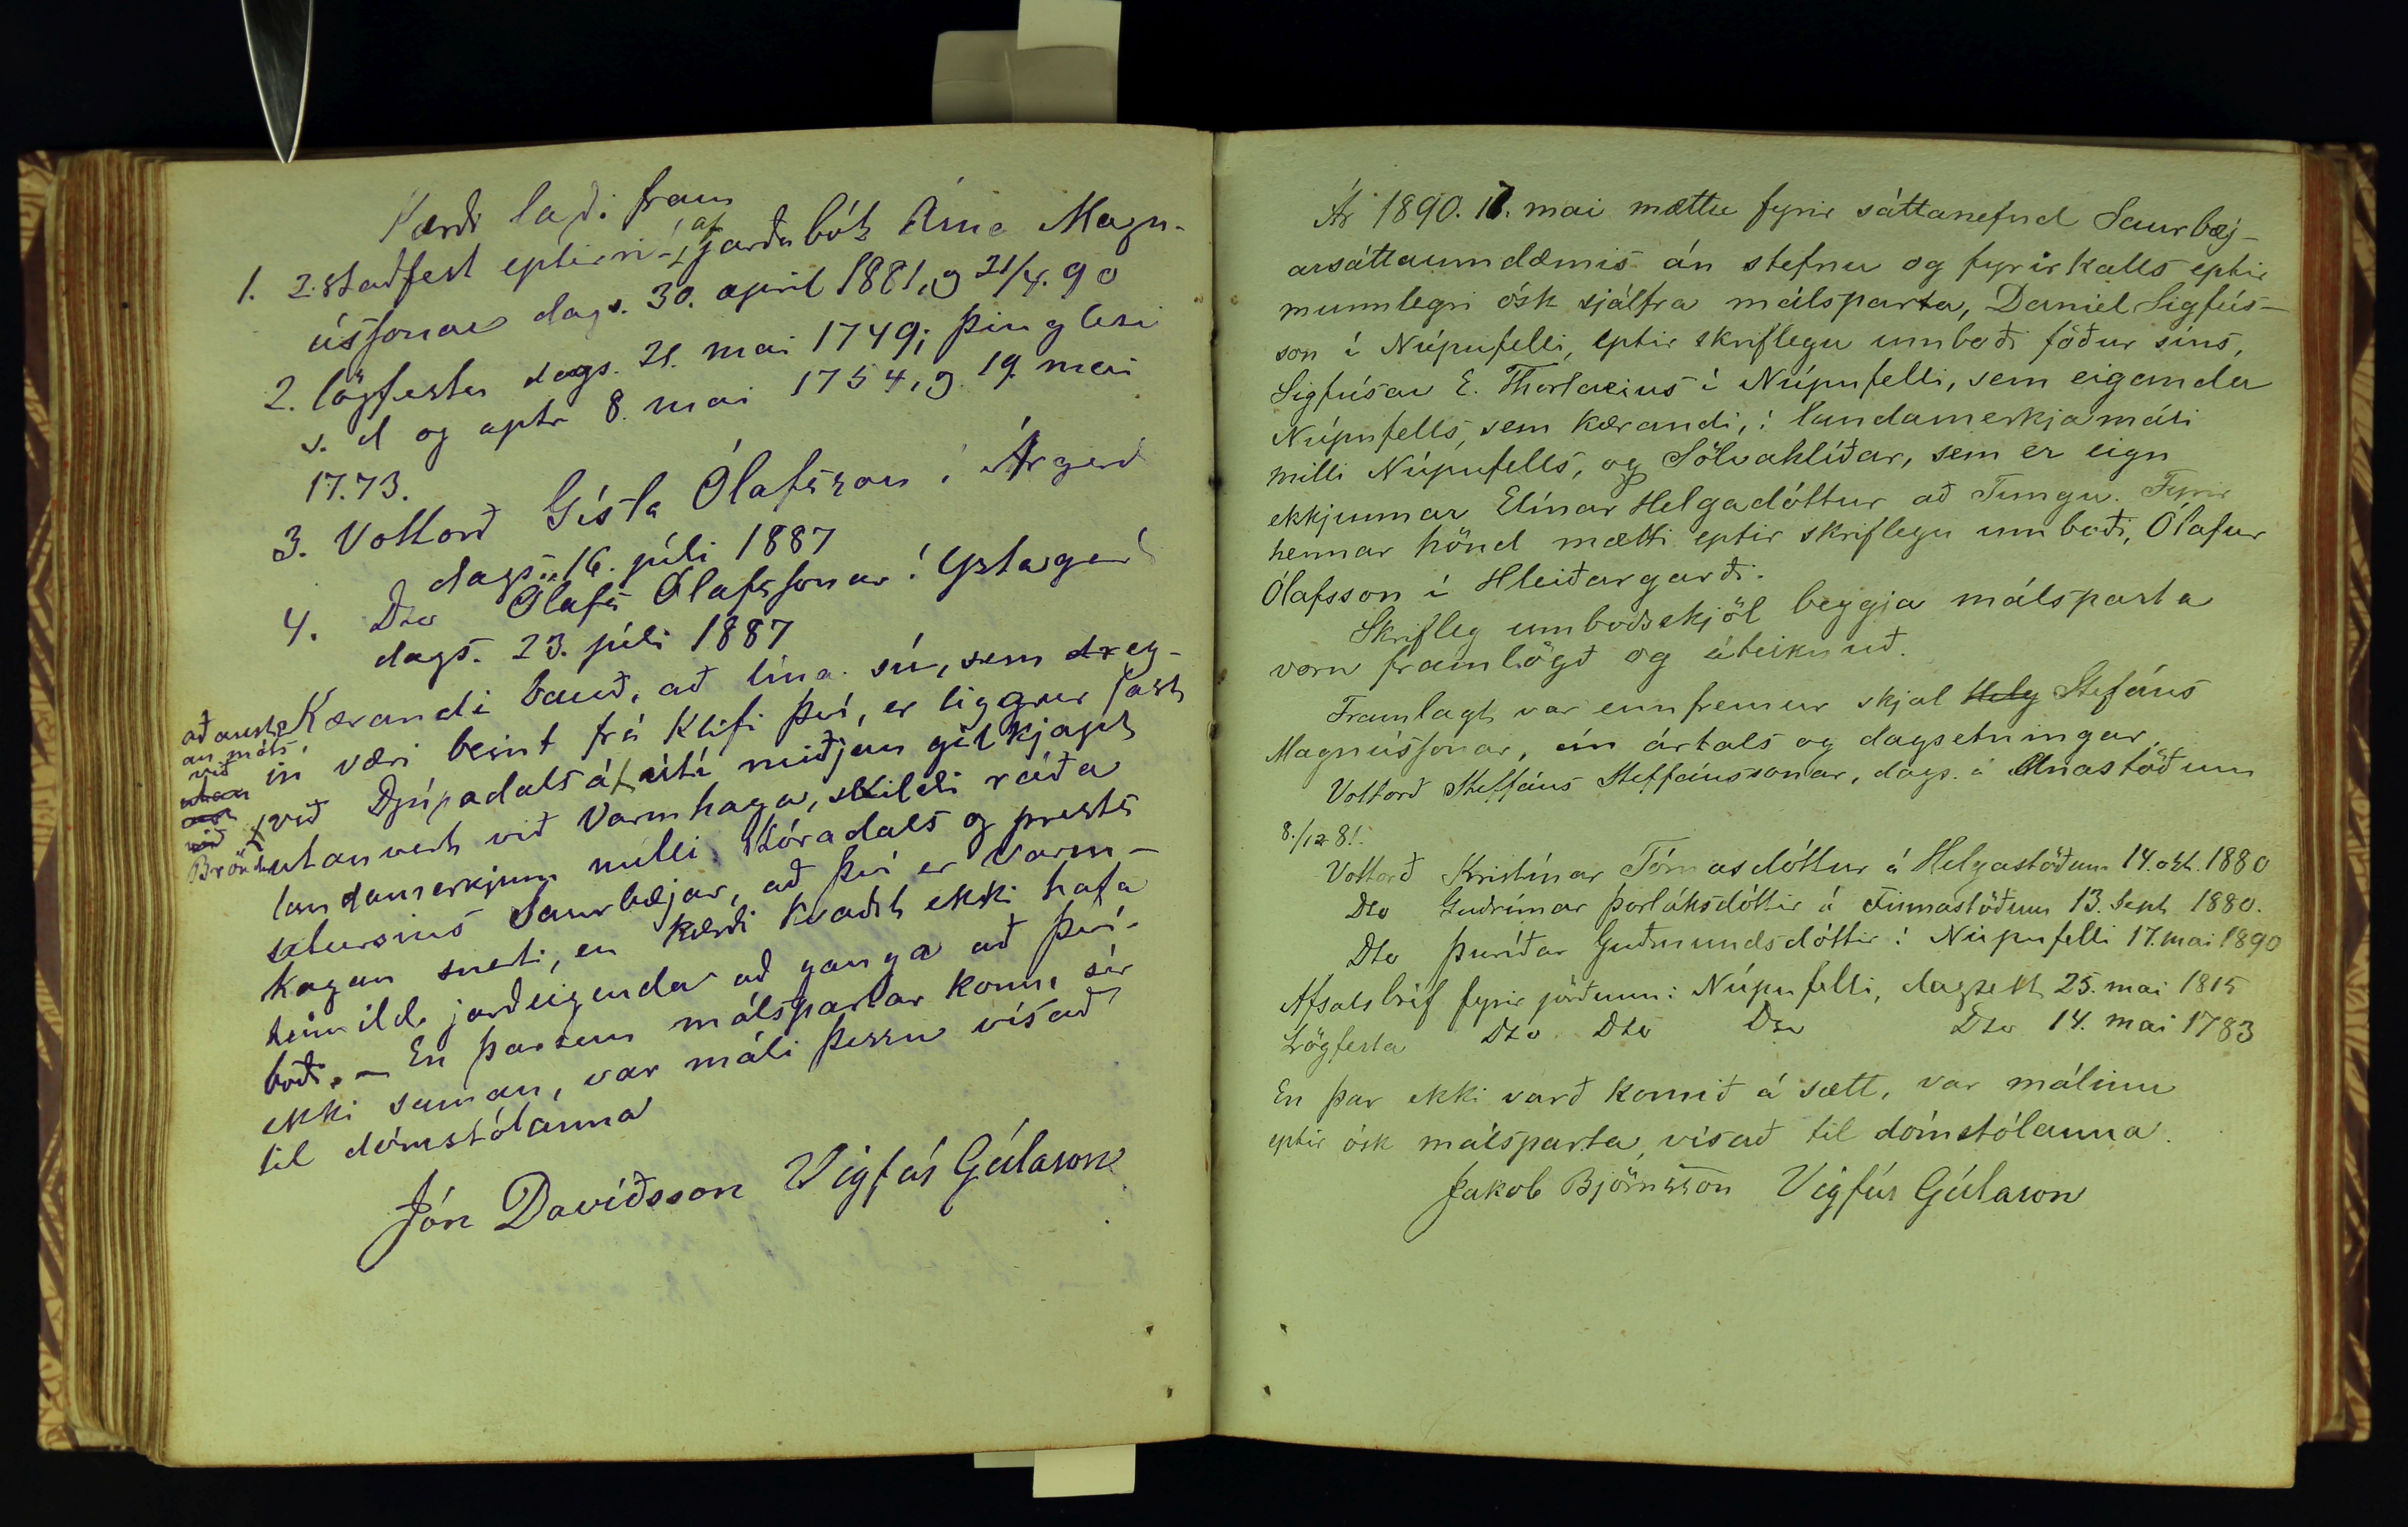 Kærði lagði fram
1. 2. staðfest eptirrit af jarðabók Árna Magn-
ússonar dags. 30. april 1881, og 21/4. 90
2. lögfesta dags. 21. mai 1749; þinglesi
s. d og aptr 8. mai 1754, og 19. mai
1773.
3. Vottorð Gísla Ólafssonar í Árgerð
dags. 16. júli 1887
4. Dto Ólafs Ólafssonar í Ystagerði
dags. 23. júli 1887
Kærandi bauð, að lína sú, sem dreg-
in væri beint frá Klifi því, er liggur fast
að austan máls
við
við Djúpadalsá, útí miðjan gilkjapt
utanvert við Varmhaga, skildi ráða
landamerkjum milli Stóradals og prests
setursins Saurbæjar, að því er Varm-
hagan snerti, en kærði kvaðst ekki hafa
heimild jarðeigenda að ganga að því
boði. — En þarsem málspartar komu sér
ekki saman, var máli þessu vísað
til dómstólanna
Jón Davíðsson Vigfús Gíslason
Ár 1890. 17. mai mættu fyrir sáttanefnd Saurbæj-
arsáttaumdæmis án stefnu og fyrirkalls eptir
munnlegri ósk sjálfra málsparta, Daniel Sigfús-
son í Núpufelli, eptir skriflegu umboði föður síns,
Sigfúsar E. Thorlacius í Núpufelli, sem eiganda
Núpufells, sem kærandi, í landamerkjamáli
milli Núpufells, og Sölvahlíðar, sem er eign
ekkjunnar Elínar Helgadóttur að Tungu. Fyrir
hennar hönd mætti eptir skriflegu umboði, Ólafur
Ólafsson í Hleiðargarði.
Skrifleg umboðsskjöl beggja málsparta
voru framlögð og áteiknuð.
Framlagt var ennfremur skjal Helg Stefáns
Magnússonar, án ártals og dagsetningar.
Vottorð Steffáns Steffánssonar, dags. á Ánastöðum
8./12 81.
Vottorð Kristínar Tómasdóttur á Helgastöðum 14. okt. 1880
Dto Guðrúnar Þorláksdóttir á Finnastöðum 13. Sept 1880.
Dto Þuríðar Guðmundsdóttir í Núpufelli 17. mai 1890
Afsalsbréf fyrir jörðunni Núpufelli, dagsett 25. mai 1815
Lögfesta Dto Dto Dto Dto 14. mai 1783
En þar ekki varð komið á sætt, var málinu
eptir ósk málsparta, vísað til dómstólanna.
Jakob Björnsson Vigfús Gíslason